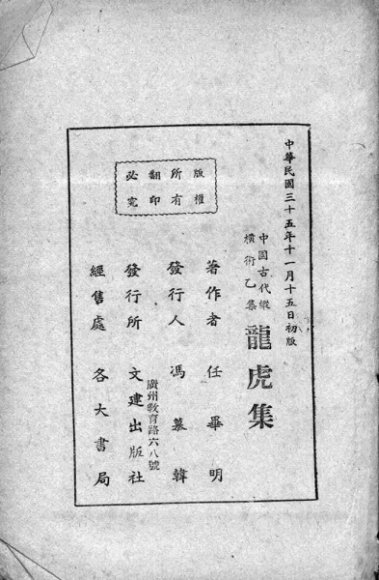 中華民國三十五年十一月十五日初版
中國古代縱
橫術乙集
龍虎集
著作者 任畢明
發行人 馮慕韓
發行所 文建出版社
廣州敎育路六八號
經售處 各大書局
版權
所有
翻印
必究